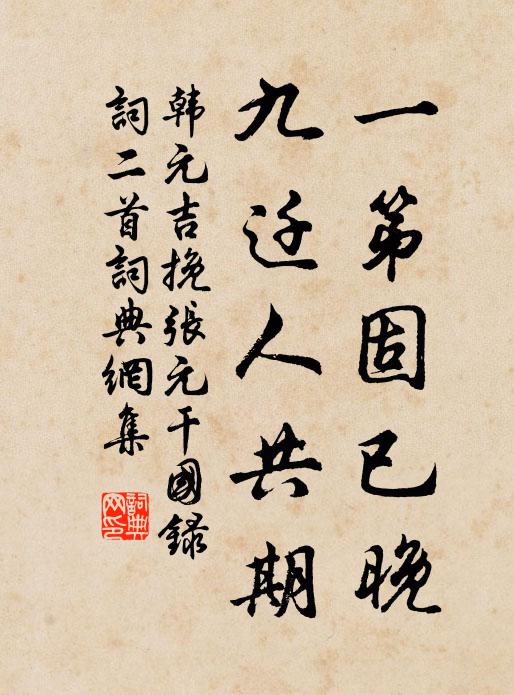 一第固已晚
九迁人共期
韩元吉挽張元干國録
詞二首詞典網集
詞典网印